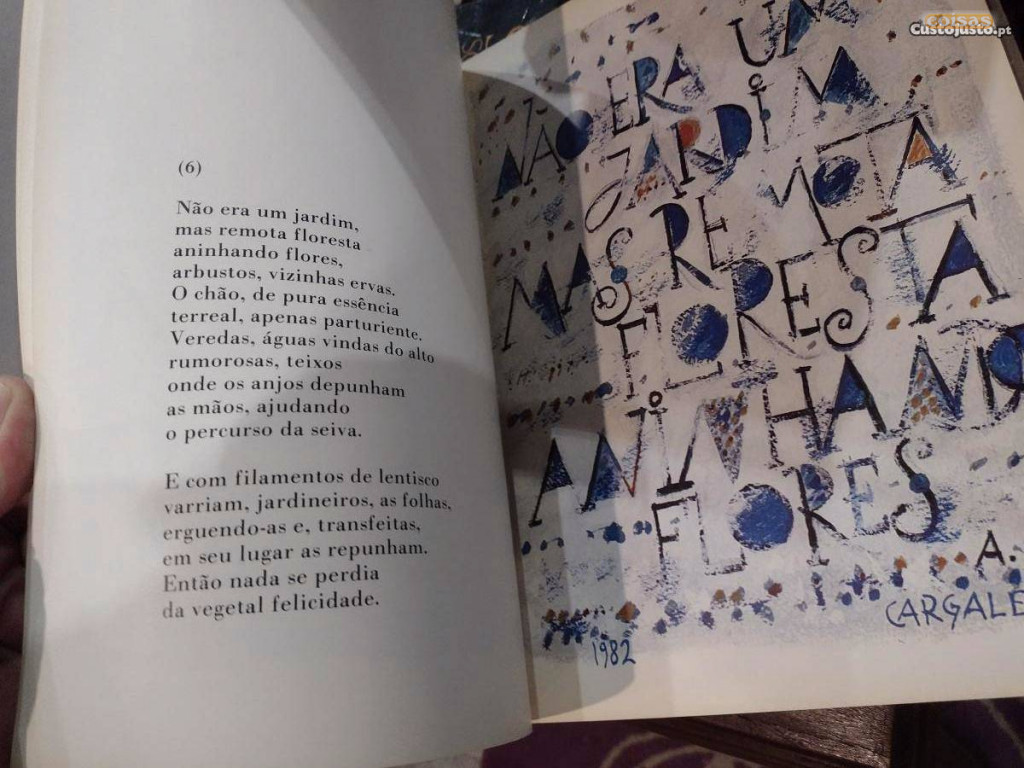 (6)
Não era um jardim,
mas remota floresta
aninhando flores,
arbustos, vizinhas ervas.
O chão, de pura essência
terreal, apenas parturiente.
Veredas, águas vindas do alto
rumorosas, teixos
onde os anjos depunham
as mãos, ajudando
o percurso da seiva.
E com filamentos de lentisco
varriam, jardineiros, as folhas,
erguendo-as e, transfeitas,
em seu lugar as repunham.
Então nada se perdia
da vegetal felicidade.
NÃO ERA UM
JARDIM
MAS REMOTA
FLORESTA
ANINHANDO
FLORES
A.
CARGALE
1982
coisas
CustoJusto.pt